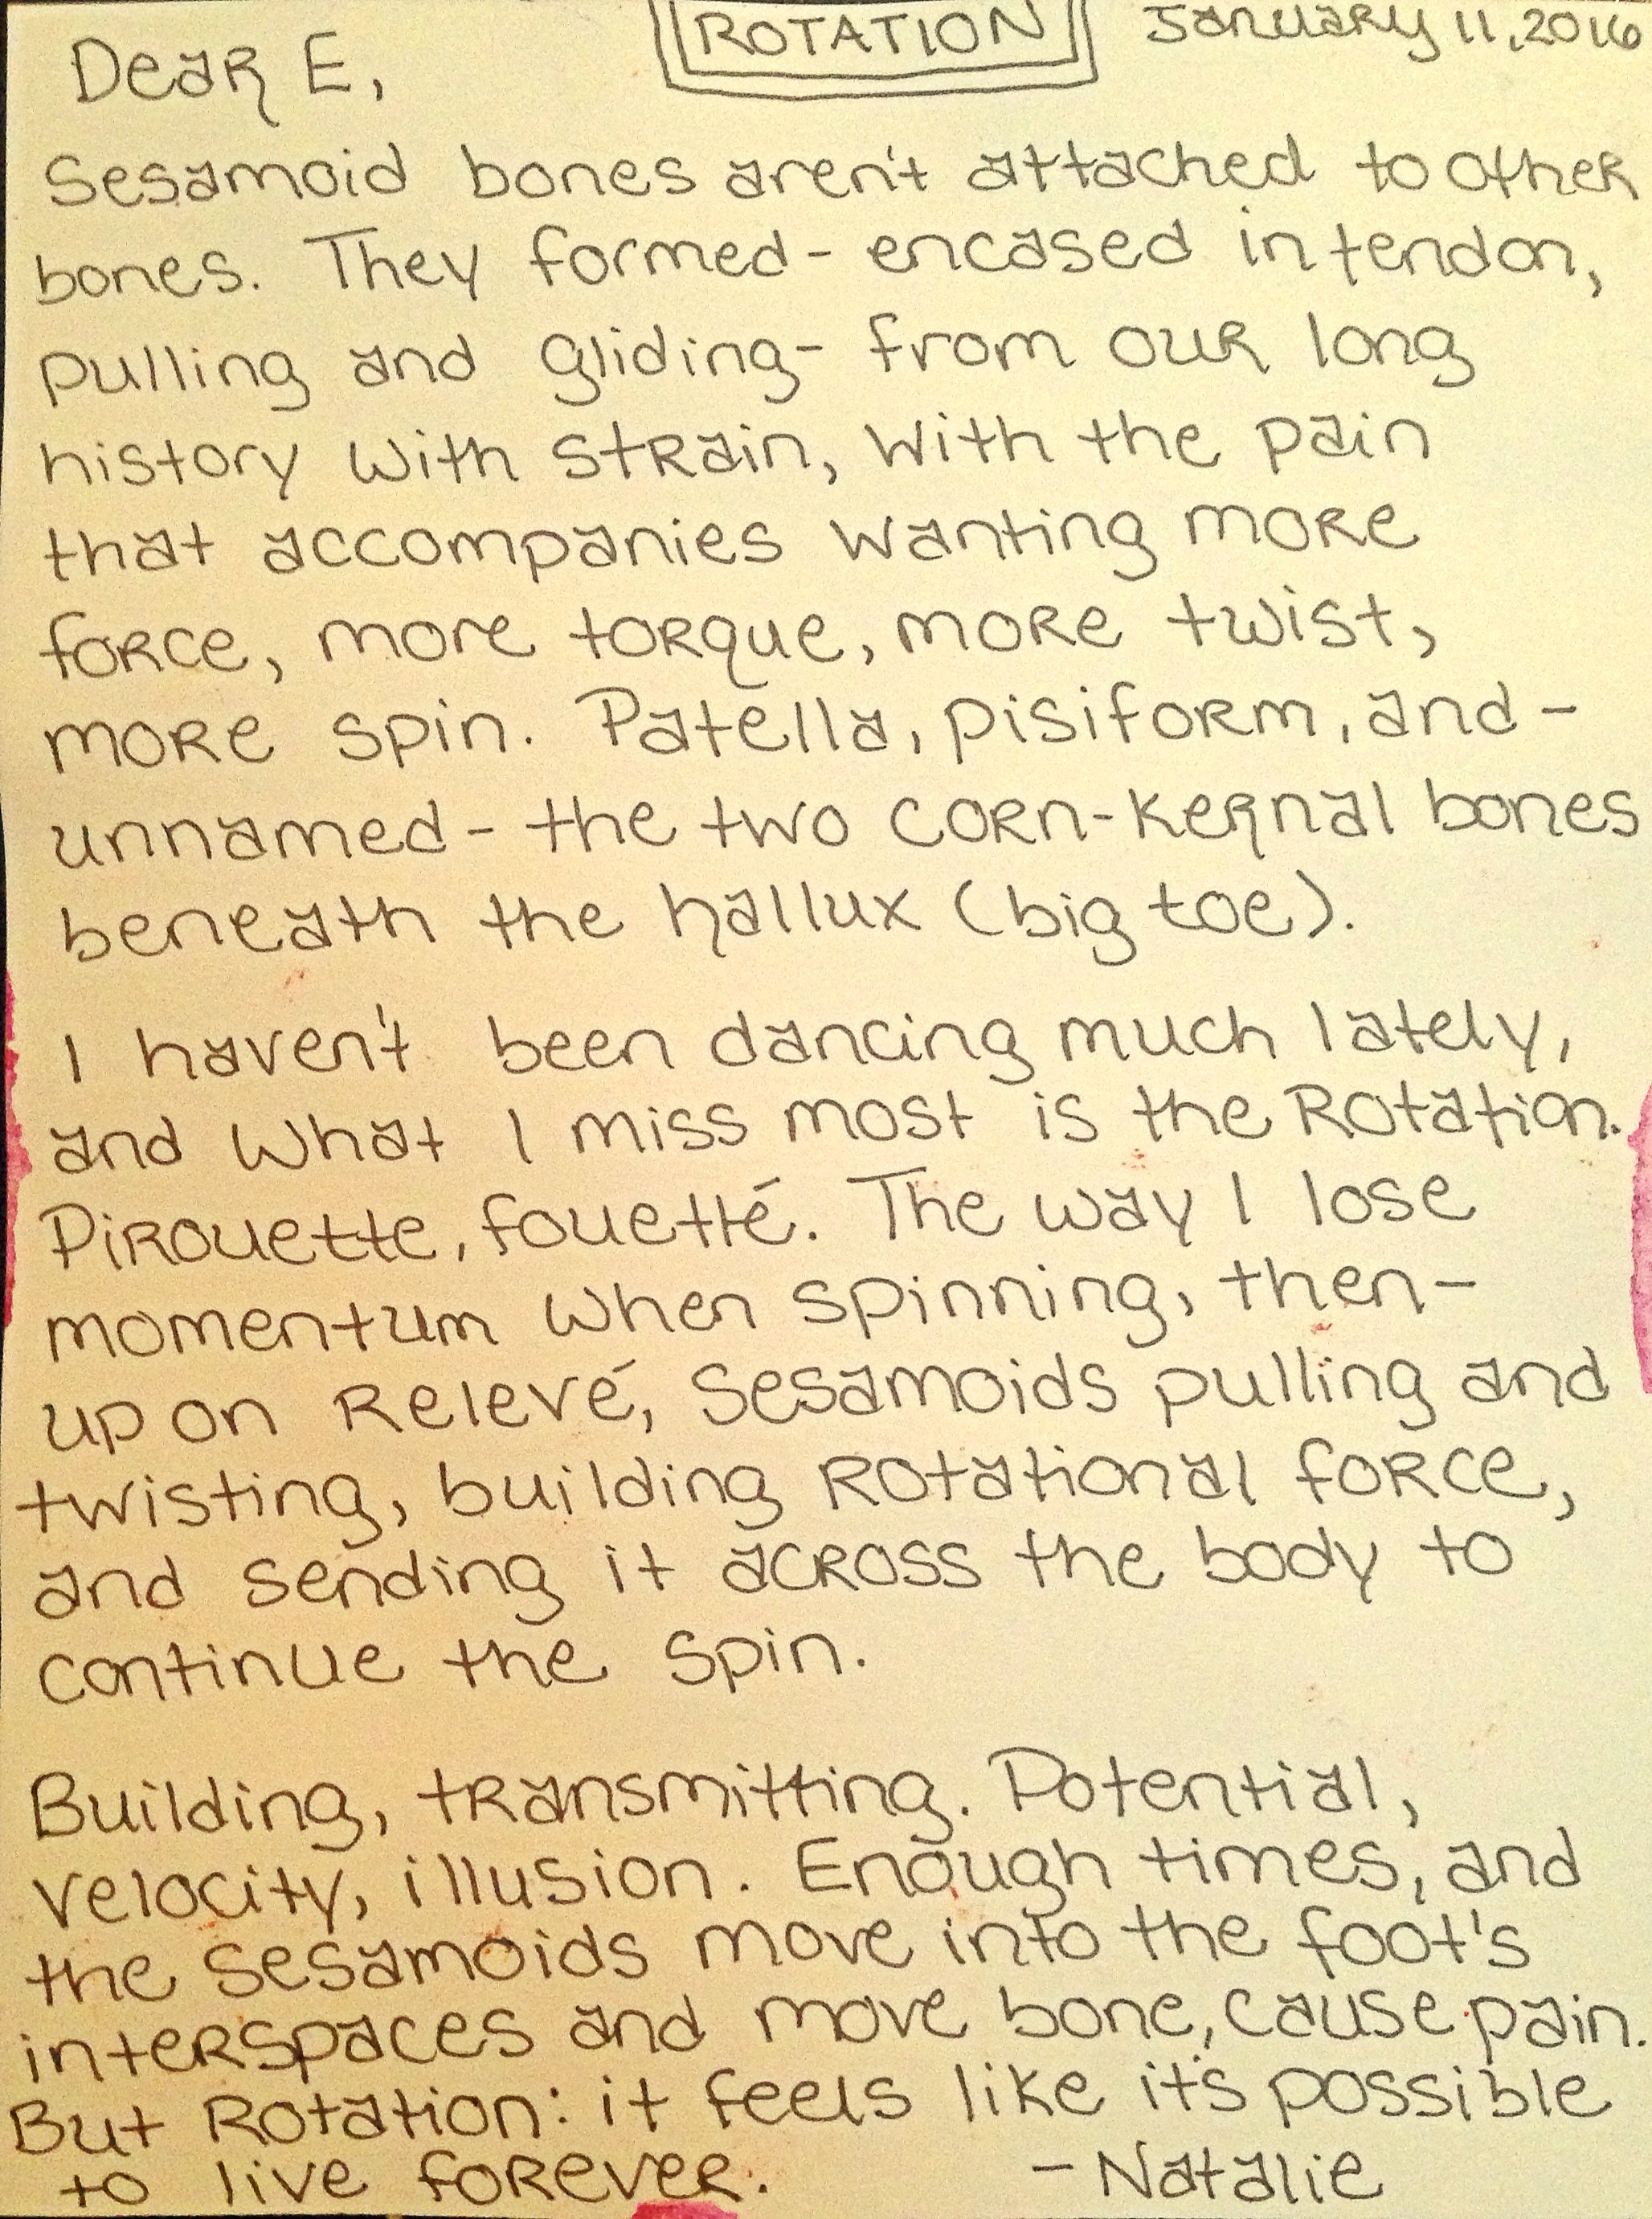 ROTATION
January 11, 2016
Dear E,
Sesamoid bones aren't attached to other
bones. They formed - encased in tendon,
pulling and gliding - from our long
history with strain, with the pain
that accompanies wanting more
force, more torque, more twist,
more spin. Patella, pisiform, and -
unnamed - the two corn-kernal bones
beneath the hallux (big toe).
I haven't been dancing much lately,
and what I miss most is the rotation.
Pirouette, fouetté. The way I lose
momentum when spinning, then -
up on relevé, sesamoids pulling and
twisting, building rotational force,
and sending it across the body to
continue the spin.
Building, transmitting. Potential,
velocity, illusion. Enough times, and
the sesamoids move into the foot's
interspaces and move bone, cause pain.
But rotation: it feels like it's possible
to live forever. - Natalie